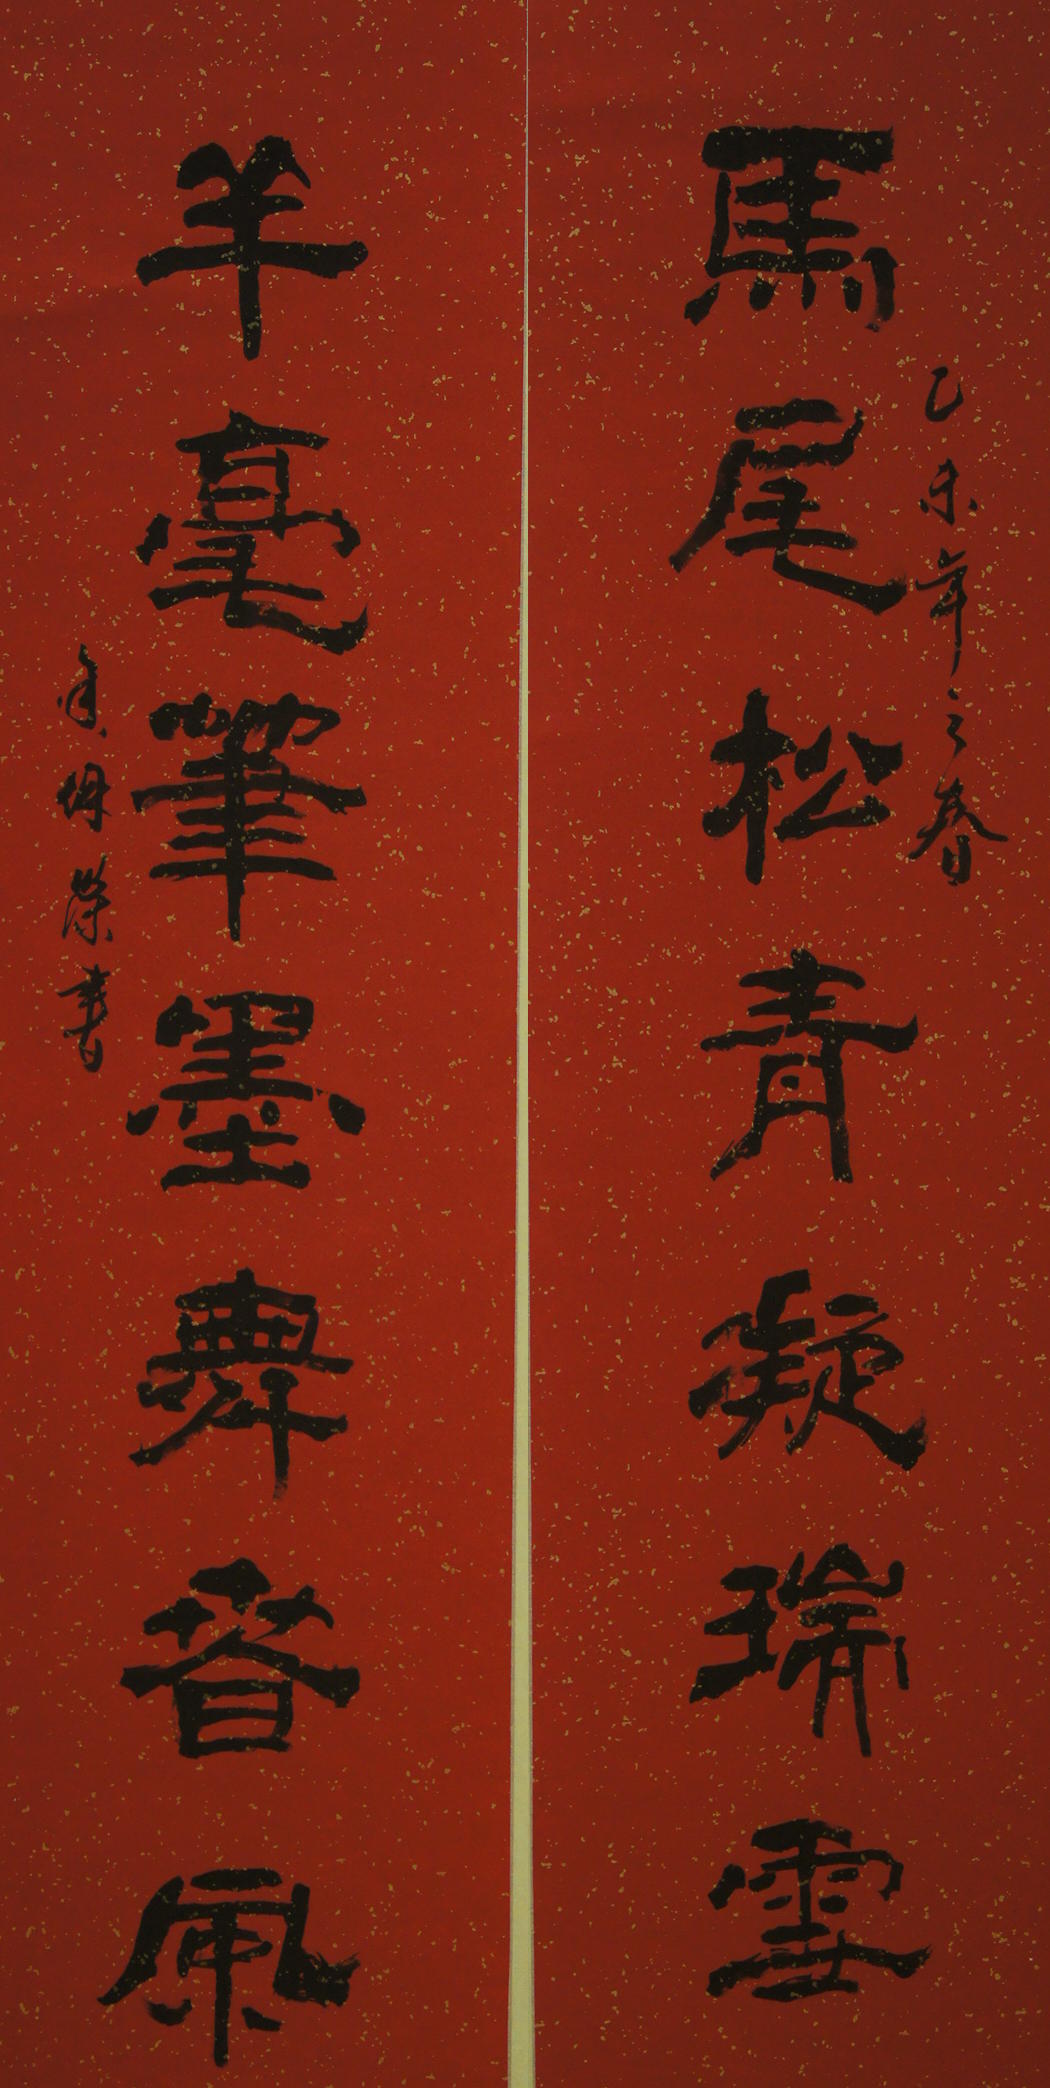 馬尾松青凝瑞雪
乙未年之春
羊毫筆墨舞春風
書